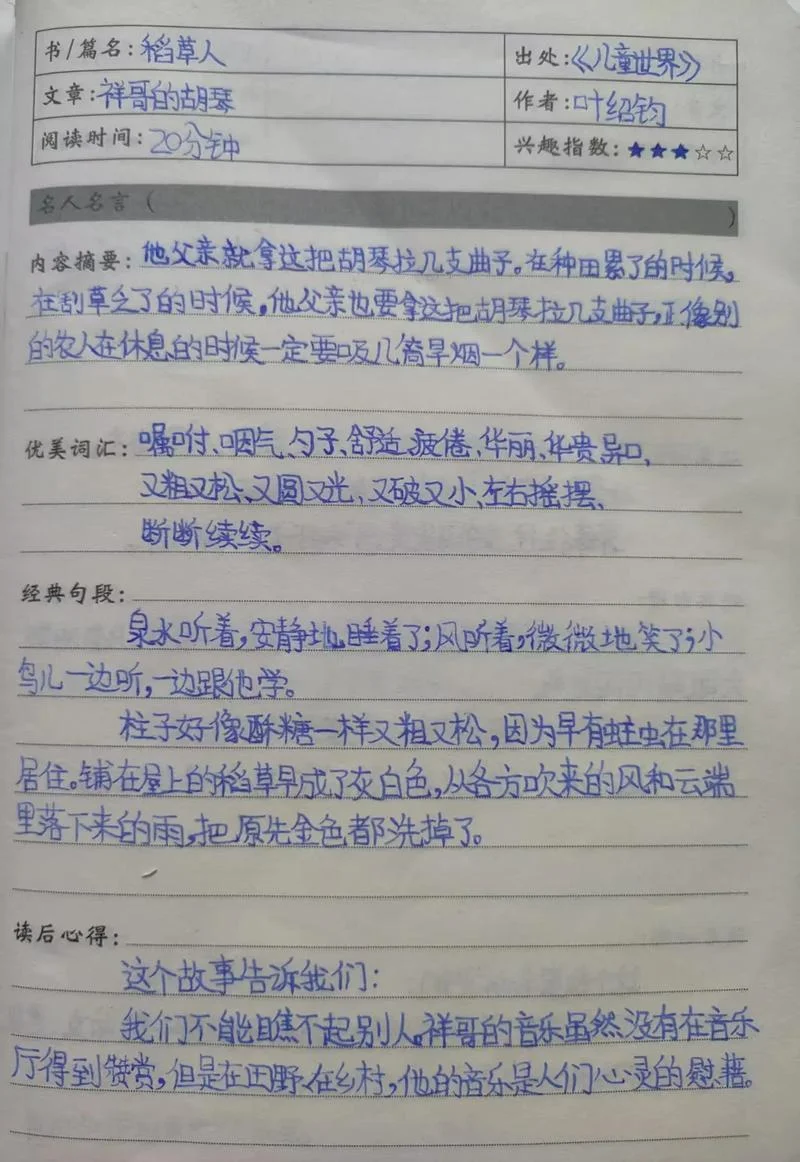 书/篇名：稻草人 出处：《儿童世界》
文章：祥哥的胡琴 作者：叶绍钧
阅读时间：20分钟 兴趣指数：★★★☆☆
名人名言（ ）
内容摘要：他父亲就拿这把胡琴拉几支曲子。在种田累了的时候，
在刮草乏了的时候，他父亲也要拿这把胡琴拉几支曲子，正像别
的农人在休息的时候一定要吸几筒旱烟一个样。
优美词汇：嘱咐、咽气、勺子、舒适、疲倦、华丽、华贵、异口、
又粗又松、又圆又光、又破又小、左右摇摆、
断断续续。
经典句段：
泉水听着，安静地睡着了；风听着，微微地笑了；小
鸟儿一边听，一边跟他学。
柱子好像酥糖一样又粗又松，因为早有蛀虫在那里
居住。铺在屋上的稻草早成了灰白色，从各方吹来的风和云端
里落下来的雨，把原先金色都洗掉了。
读后心得：
这个故事告诉我们：
我们不能瞧不起别人。祥哥的音乐虽然没有在音乐
厅得到赞赏，但是在田野、在乡村，他的音乐是人们心灵的慰藉。